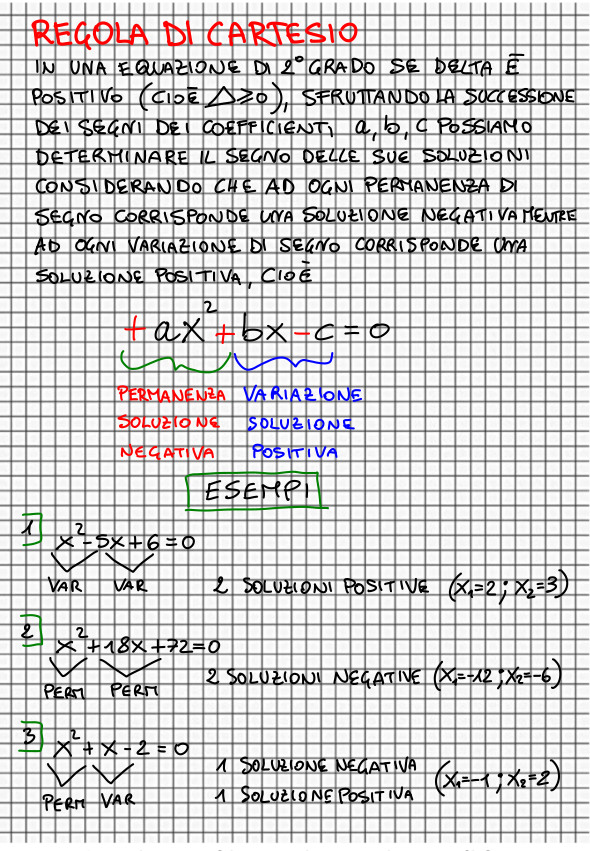 REGOLA DI CARTESIO
IN UNA EQUAZIONE DI 2° GRADO SE DELTA È
POSITIVO (CIOÈ △⩾0), SFRUTTANDO LA SUCCESSIONE
DEI SEGNI DEI COEFFICIENTI a, b, c POSSIAMO
DETERMINARE IL SEGNO DELLE SUE SOLUZIONI
CONSIDERANDO CHE AD OGNI PERMANENZA DI
SEGNO CORRISPONDE UNA SOLUZIONE NEGATIVA MENTRE
AD OGNI VARIAZIONE DI SEGNO CORRISPONDE UNA
SOLUZIONE POSITIVA, CIOÈ
+ax²+bx-c=0
PERMANENZA VARIAZIONE
SOLUZIONE SOLUZIONE
NEGATIVA POSITIVA
ESEMPI
1 x²-5x+6=0
VAR VAR 2 SOLUZIONI POSITIVE (x₁=2; x₂=3)
2 x²+18x+72=0
PERM PERM 2 SOLUZIONI NEGATIVE (x₁=-12; x₂=-6)
3 x²+x-2=0
PERM VAR 1 SOLUZIONE NEGATIVA
1 SOLUZIONE POSITIVA (x₁=-1; x₂=2)